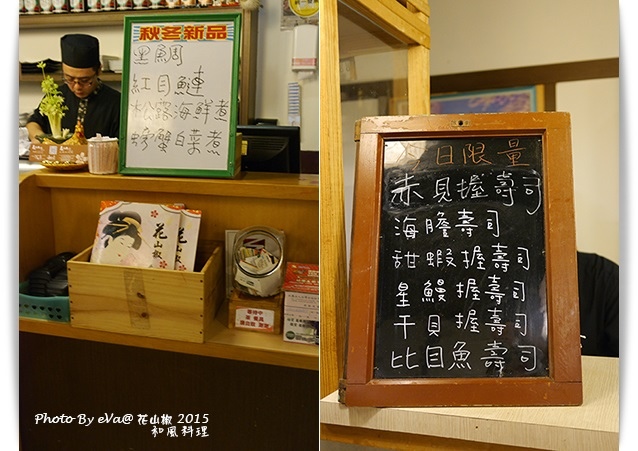 秋冬新品
黑鯛
紅目鰱
松露海鮮煮
螃蟹白菜煮
花山椒
花山椒
Photo By eVa@ 花山椒 2015
和風料理
今日限量
赤貝握壽司
海膽壽司
甜蝦握壽司
星鰻握壽司
干貝握壽司
比目魚壽司